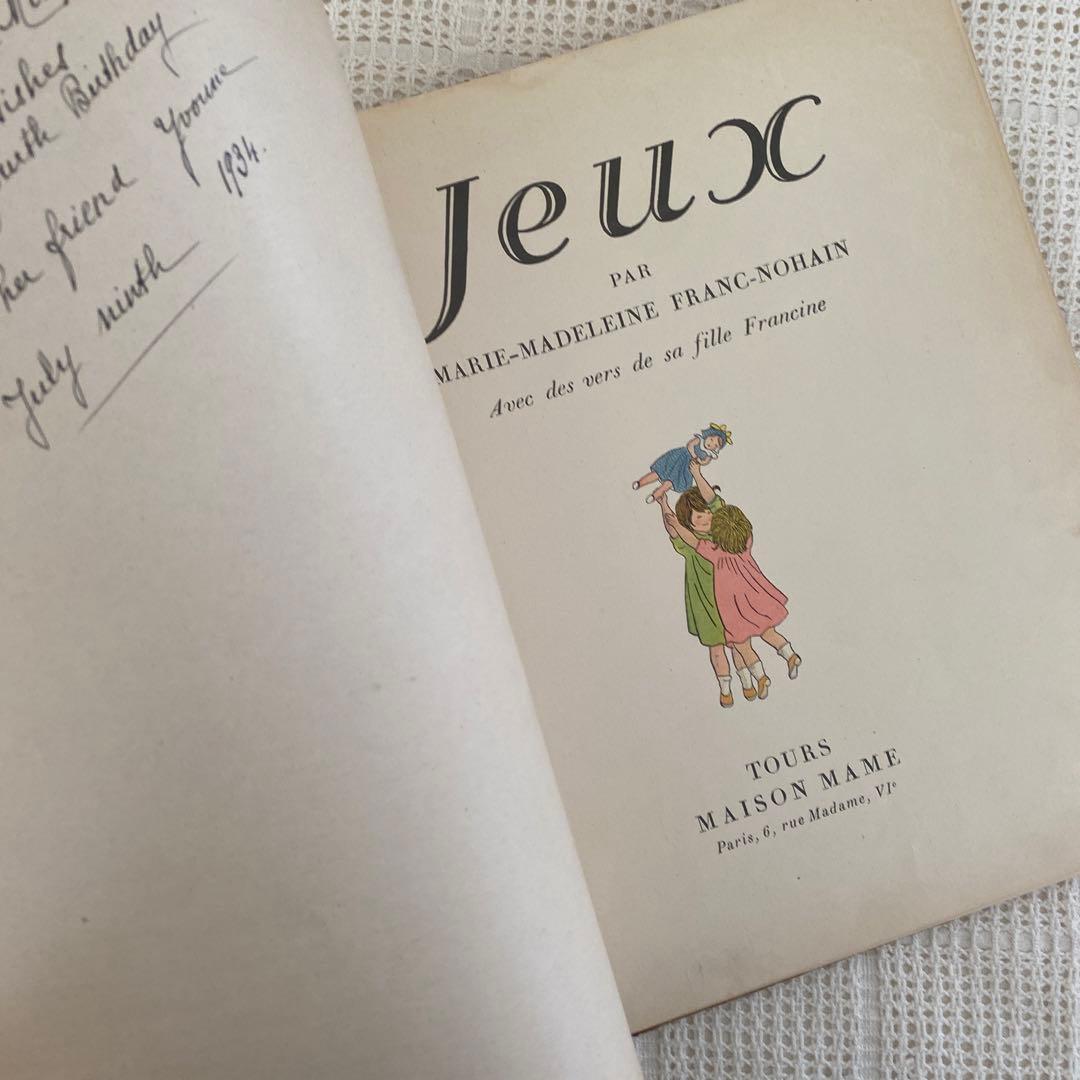 ishes
Birthday
her friend Yvonne
1934.
July ninth
Jeux
PAR
MARIE-MADELEINE FRANC-NOHAIN
Avec des vers de sa fille Francine
TOURS
MAISON MAME
Paris, 6, rue Madame, VIᵉ